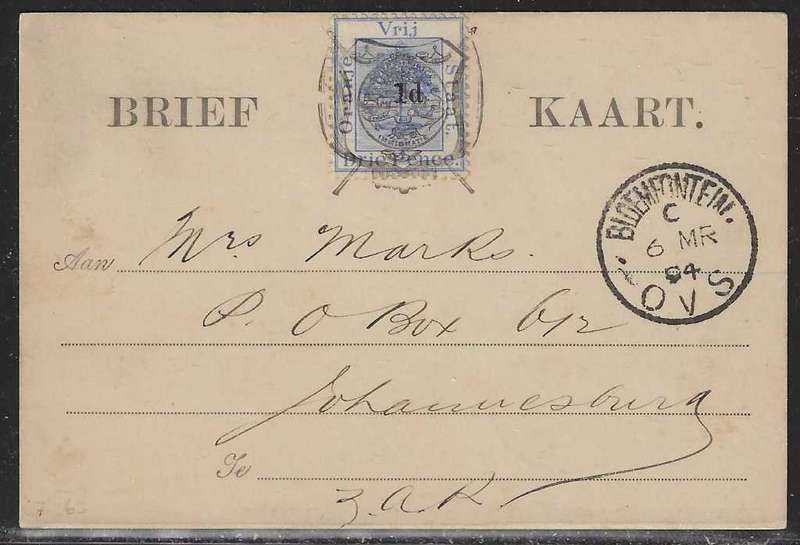 Vrij
Oranje Staat.
1d
Drie Pence.
BRIEF KAART.
BLOEMFONTEIN.
C
6 MR
94
O V S
Aan Mrs Marks.
P. O Box 612
Johannesburg
Te
Z.A.R.